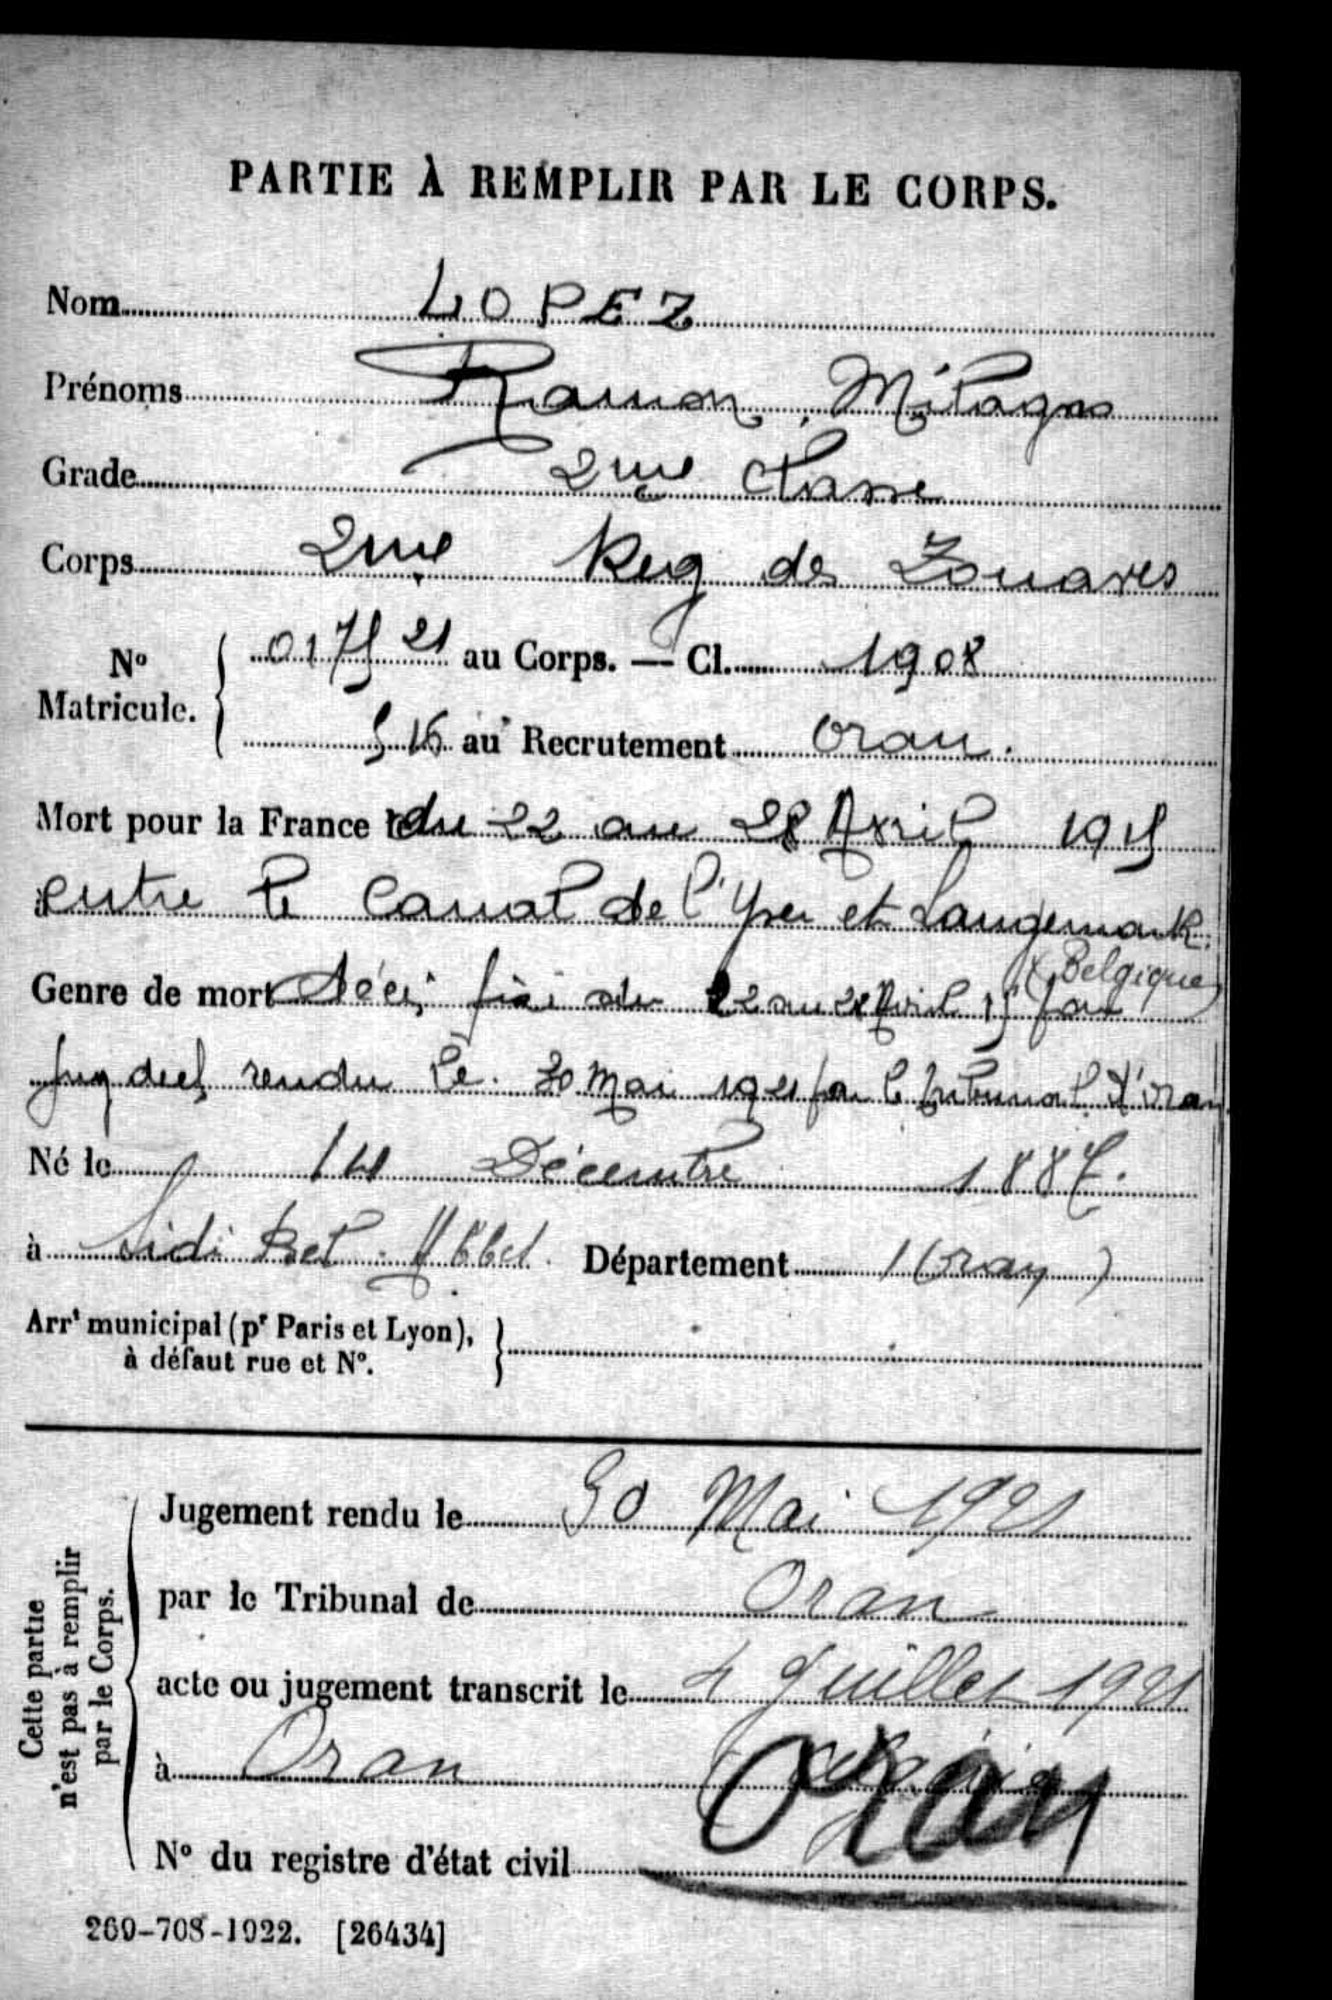 PARTIE À REMPLIR PAR LE CORPS.
Nom LOPEZ
Prénoms Ramon, Milagro
Grade 2me Classe
Corps 2me Reg de Zouaves
No Matricule. 0175 21 au Corps. — Cl. 1908
516 au Recrutement Oran.
Mort pour la France du 22 au 28 Avril 1915
entre le Canal de l'Yser et Langemark
(Belgique)
Genre de mort Décès fixé du 22 au 28 Avril 15 par
Jug décl rendu le 30 Mai 1921 par le tribunal d'Oran
Né le 14 Décembre 1887.
à Sidi Bel Abbes. Département (Oran)
Arrt municipal (pr Paris et Lyon),
à défaut rue et No.
Cette partie
n'est pas à remplir
par le Corps.
Jugement rendu le 30 Mai 1921
par le Tribunal de Oran
acte ou jugement transcrit le 4 Juillet 1921
à Oran
Oran
No du registre d'état civil
269-708-1922. [26434]